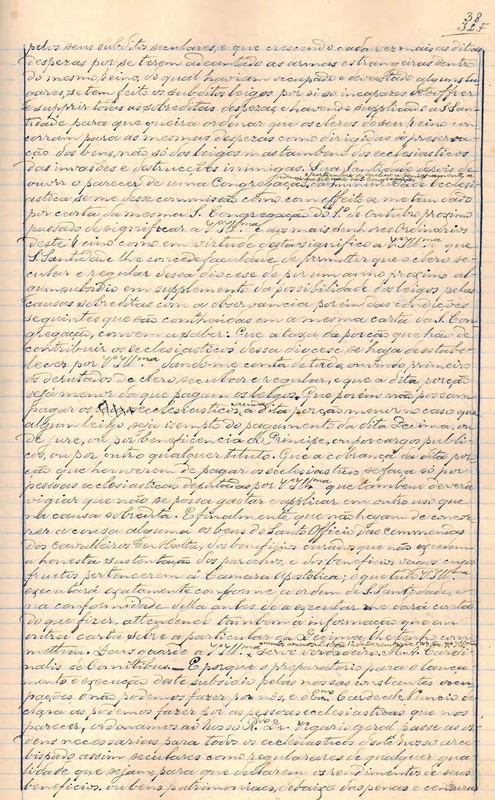 38
327
pelos seus subditos seculares, e que crescendo cada vez mais as ditas
despezas por se terem accantado as armas estrangeiras dentro
do mesmo reino, do qual haviam occupado e devastado alguns lu-
gares, se tem feito os subditos leigos por si só incapazes de soffrer
e supprir todas as sobreditas despezas, e havendo supplicado a S. San-
tidade para que queira ordenar que os cleros do seu reino con-
corram para as mesmas despezas como dirigidas á preserva-
ção dos bens, não só dos leigos mas tambem dos ecclesiasticos
das invasões e destrucções inimigas. Sua Santidade depois de
ouvir o parecer de uma Congregação, da immunidade ecclesi-
astica se me desse commissão como com effeito se me tem dado
por carta da mesma S. Congregação do 1º de Outubro proximo
passado de significar a V. Sª Illma e aos mais senhores Ordinarios
deste reino como em virtude desta significo a V. Sª Illma que
S. Santidade lhe concede faculdade de permittir que o clero se-
cular e regular dessa diocese dê por um anno proximo al-
gum subsidio em supplemento da possibilidade dos leigos pelas
causas sobreditas com a observancia porém das condições
seguintes que são contheudas em a mesma carta da S. Con-
gregação, convem a saber: Que a taxa da porção que hão de
contribuir os ecclesiasticos dessa diocese se haja de estabe-
lecer por V. Sª Illma dando-me conta de tudo, ouvindo primeiro
os deputados do clero, secular e regular, e que a dita porção
seja menor da que pagam os leigos. Que porém não possam
pagar os ecclesiasticos, a dita porção menor no caso que
algum leigo, seja isempto do pagamento da dita Decima, ou
de jure, ou por beneficencia do Principe, ou por cargos publi-
cos, ou por outro qualquer titulo. Que a cobrança da dita por-
ção que houverem de pagar os ecclesiasticos se faça só por
pessoas ecclesiasticas deputadas por V. Sª Illma que tambem deverá
vigiar que não se possa gastar e applicar em outro uso que
na causa sobredita. E finalmente que não hajam de concor-
rer a causa alguma os bens do Santo Officio, das commendas
dos cavalleiros de Malta, dos beneficios curados que não excedem
a honesta sustentação dos parochos, e dos beneficios vagos cujos
fructos pertencerem á Camara Apostolica; o que tudo V. Sª Illma
executará exatamente conforme a ordem de S. Santidade, e
na conformidade della antes de a executar me dará conta
do que fizer, attendendo tambem á informação que em
outra carta sobre a particular da Decima lhe tenho com-
mettido. Deus guarde a V. Sª Illma
nalis de Comitibus — E porque o preparatorio para o lança-
mento e execução deste subsidio pelas nossas constantes occu-
pações o não podemos fazer por nós, e o Emº Cardeal Nuncio de-
clara as podemos fazer por as pessoas ecclesiasticas que nos
parecer, ordenamos ao nosso Rdo Dr. Vigario geral passe as or-
dens necessarias para todos os ecclesiasticos deste nosso arce-
bispado, assim seculares como regulares de qualquer qua-
lidade que sejam, para que declarem os rendimentos de seus
beneficios, ou bens patrimoniaes, debaixo das penas e censuras